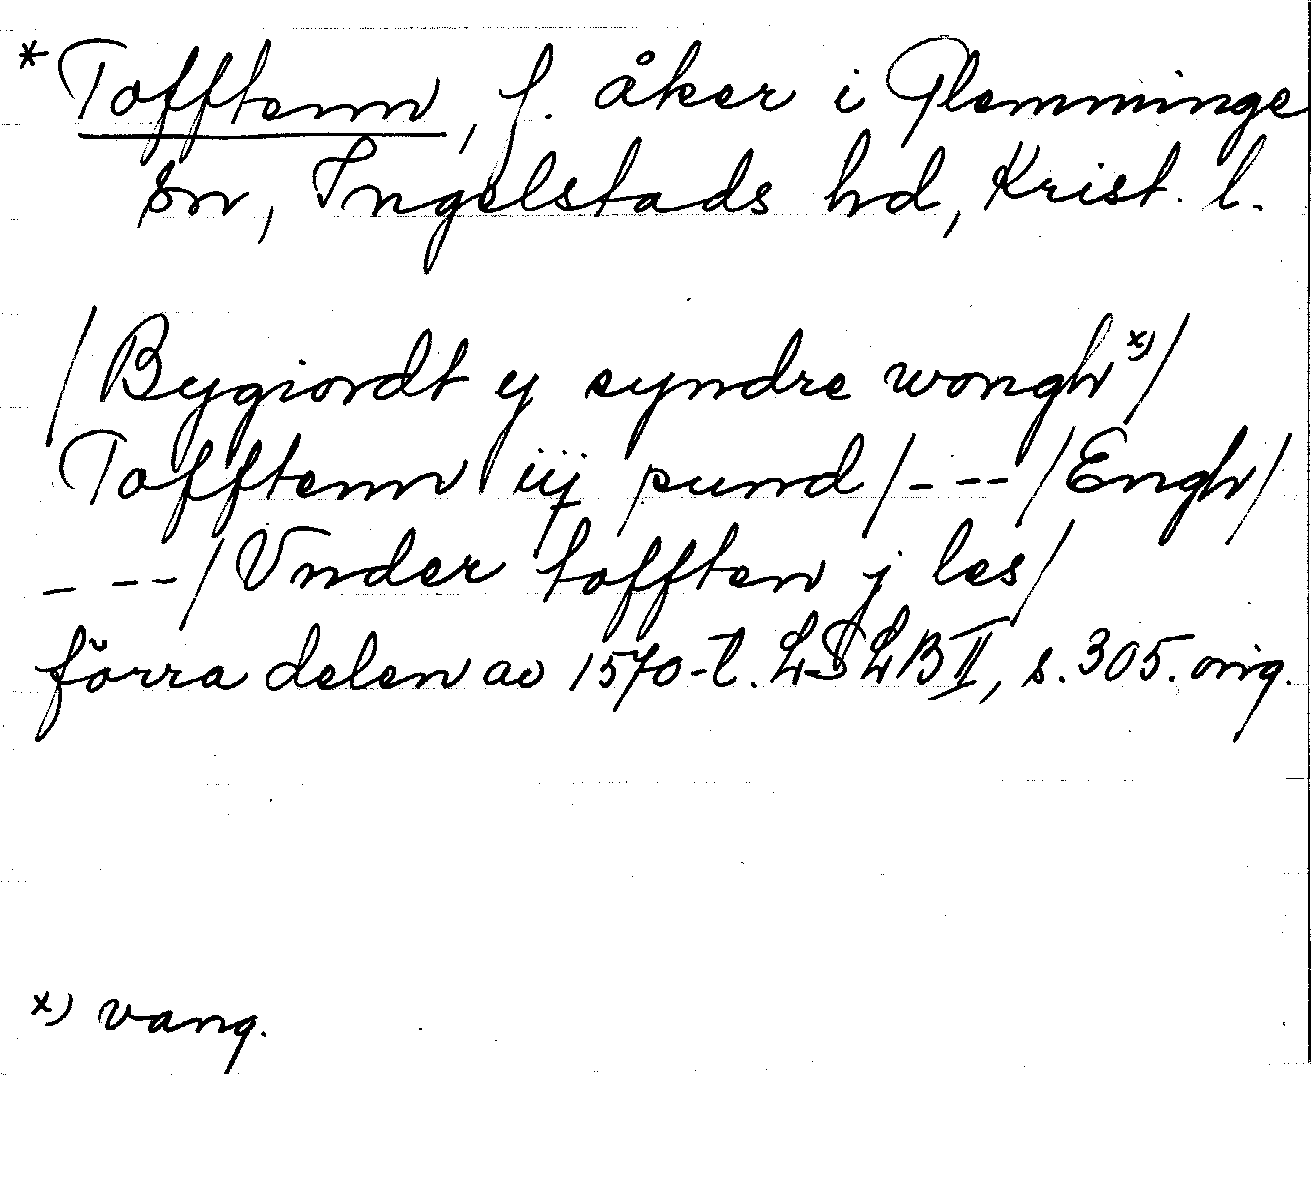 * Tofftenn, f. åker i Glemminge
sn, Ingelstads hd, Krist. l.
/Bygiordt y syndre wongh x)/
Tofftenn iij pund/---/Engh/
---/Vnder tofften j les/
förra delen av 1570-t. LSLB II, s. 305. orig.
x) vang.